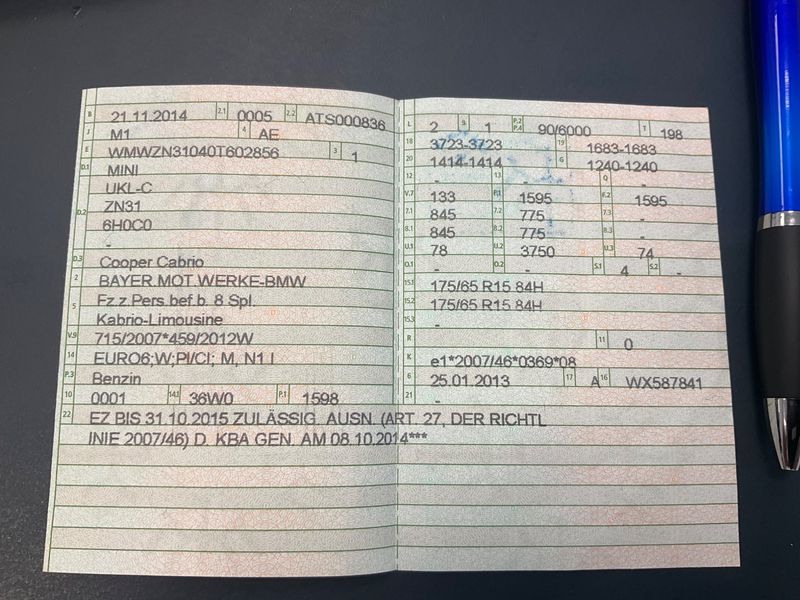 B 21.11.2014 2.1 0005 2.2 ATS000836
J M1 4 AE
E WMWZN31040T602856 3 1
D.1 MINI
UKL-C
D.2 ZN31
6H0C0
-
D.3 Cooper Cabrio
2 BAYER.MOT.WERKE-BMW
5 Fz.z.Pers.bef.b. 8 Spl.
Kabrio-Limousine
V.9 715/2007*459/2012W
14 EURO6;W;PI/CI; M, N1 I
P.3 Benzin
10 0001 14.1 36W0 P.1 1598
22 EZ BIS 31.10.2015 ZULÄSSIG. AUSN. (ART. 27, DER RICHTL
INIE 2007/46) D. KBA GEN. AM 08.10.2014***
L 2 9 1 P.2 P.4 90/6000 T 198
18 3723-3723 19 1683-1683
20 1414-1414 G 1240-1240
12 - 13 - Q -
V.7 133 F.1 1595 F.2 1595
7.1 845 7.2 775 7.3 -
8.1 845 8.2 775 8.3 -
U.1 78 U.2 3750 U.3 74
O.1 - O.2 - S.1 4 S.2 -
15.1 175/65 R15 84H
15.2 175/65 R15 84H
15.3 -
R 11 0
K e1*2007/46*0369*08
6 25.01.2013 17 A 16 WX587841
21 -